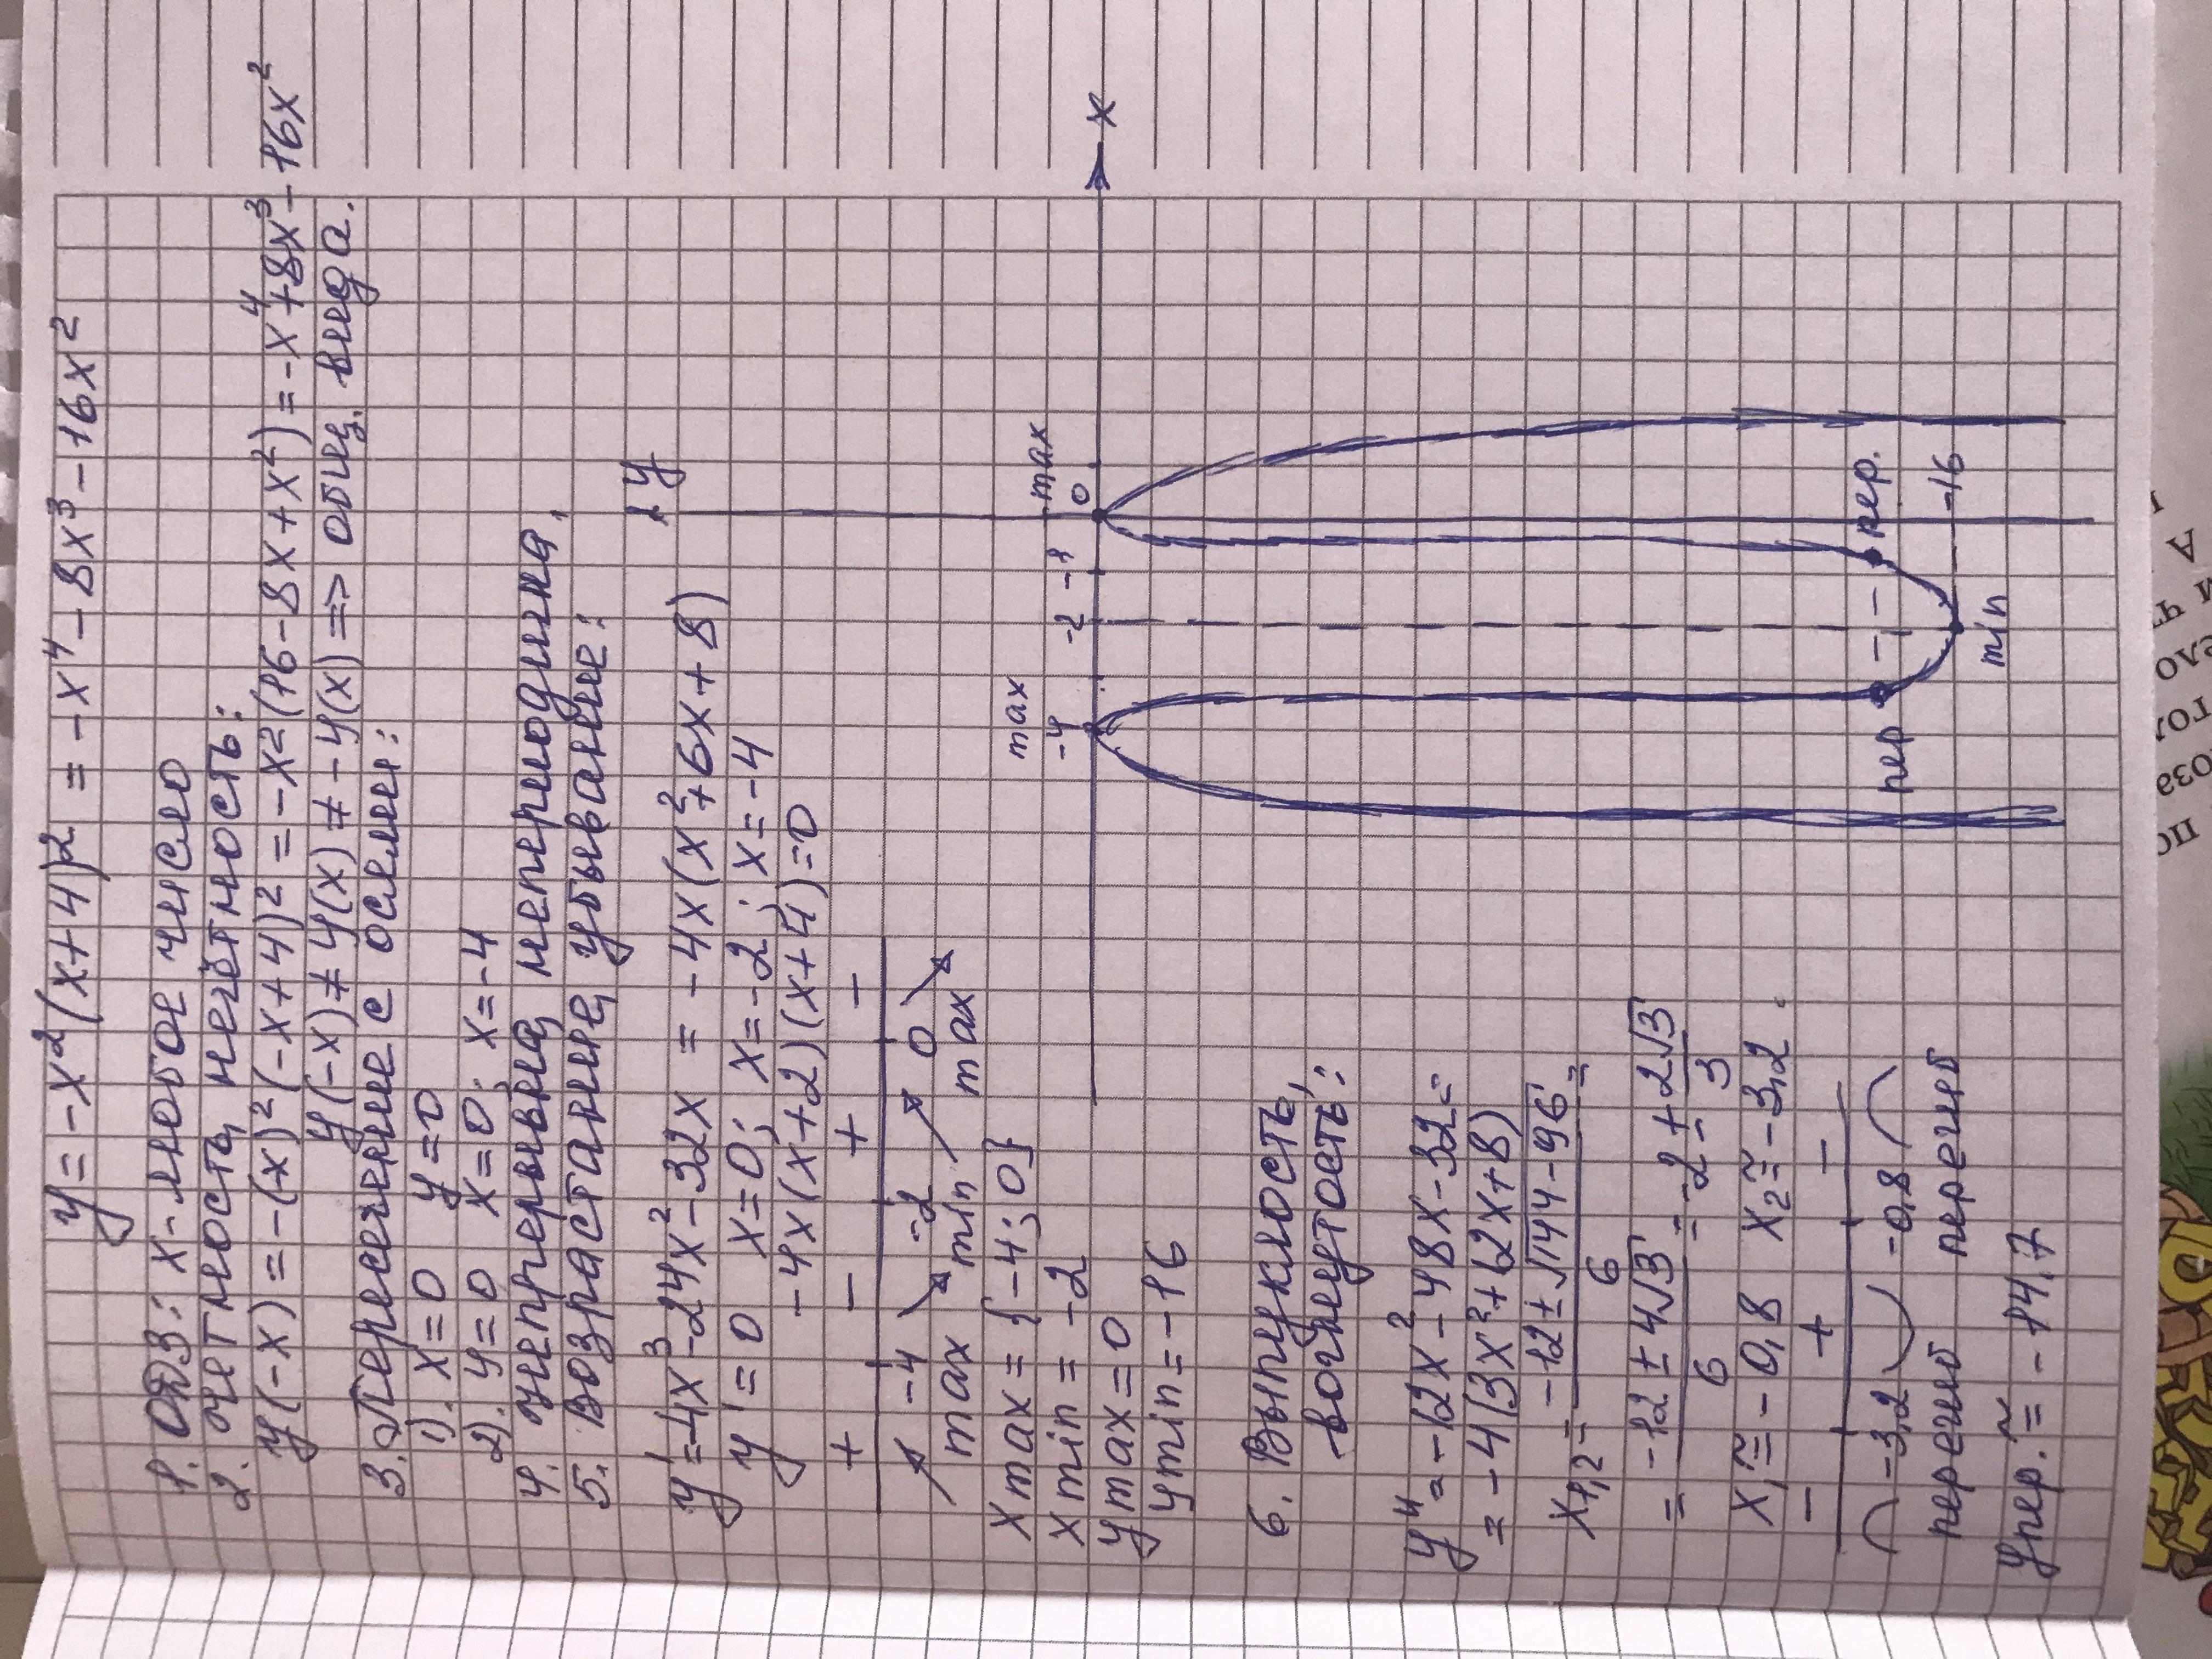 y = -x²(x+4)² = -x⁴ - 8x³ - 16x²
1. ОДЗ: x - любое число
2. четность, нечётность:
y(-x) = -(x)²(-x+4)² = -x²(16-8x+x²) = -x⁴+8x³-16x²
y(-x) ≠ y(x) ≠ -y(x) => общ. вида.
3. Пересечение с осями:
1). x=0 y=0
2). y=0 x=0; x=-4
4. непрерывна, непериодична,
5. возрастание, убывание:
y' = -4x³-24x²-32x = -4x(x²+6x+8)
y'=0 x=0; x=-2; x=-4
-4x(x+2)(x+4)=0
+ - + -
-4 -2 0
max min max
x max = {-4; 0}
x min = -2
y max = 0
y min = -16
y
max max
-4 -2 -1 0 x
пер пер.
-16
min
6. Выпуклость,
вогнутость:
y" = -12x²-48x-32 =
= -4(3x²+12x+8)
x1,2 = -12±√144-96 / 6 =
= -12±4√3 / 6 = -2 ± 2√3 / 3
x₁ ≅ -0,8 x₂ ≅ -3,2.
- + -
-3,2 -0,8
перегиб перегиб
y пер. ≅ -14,7